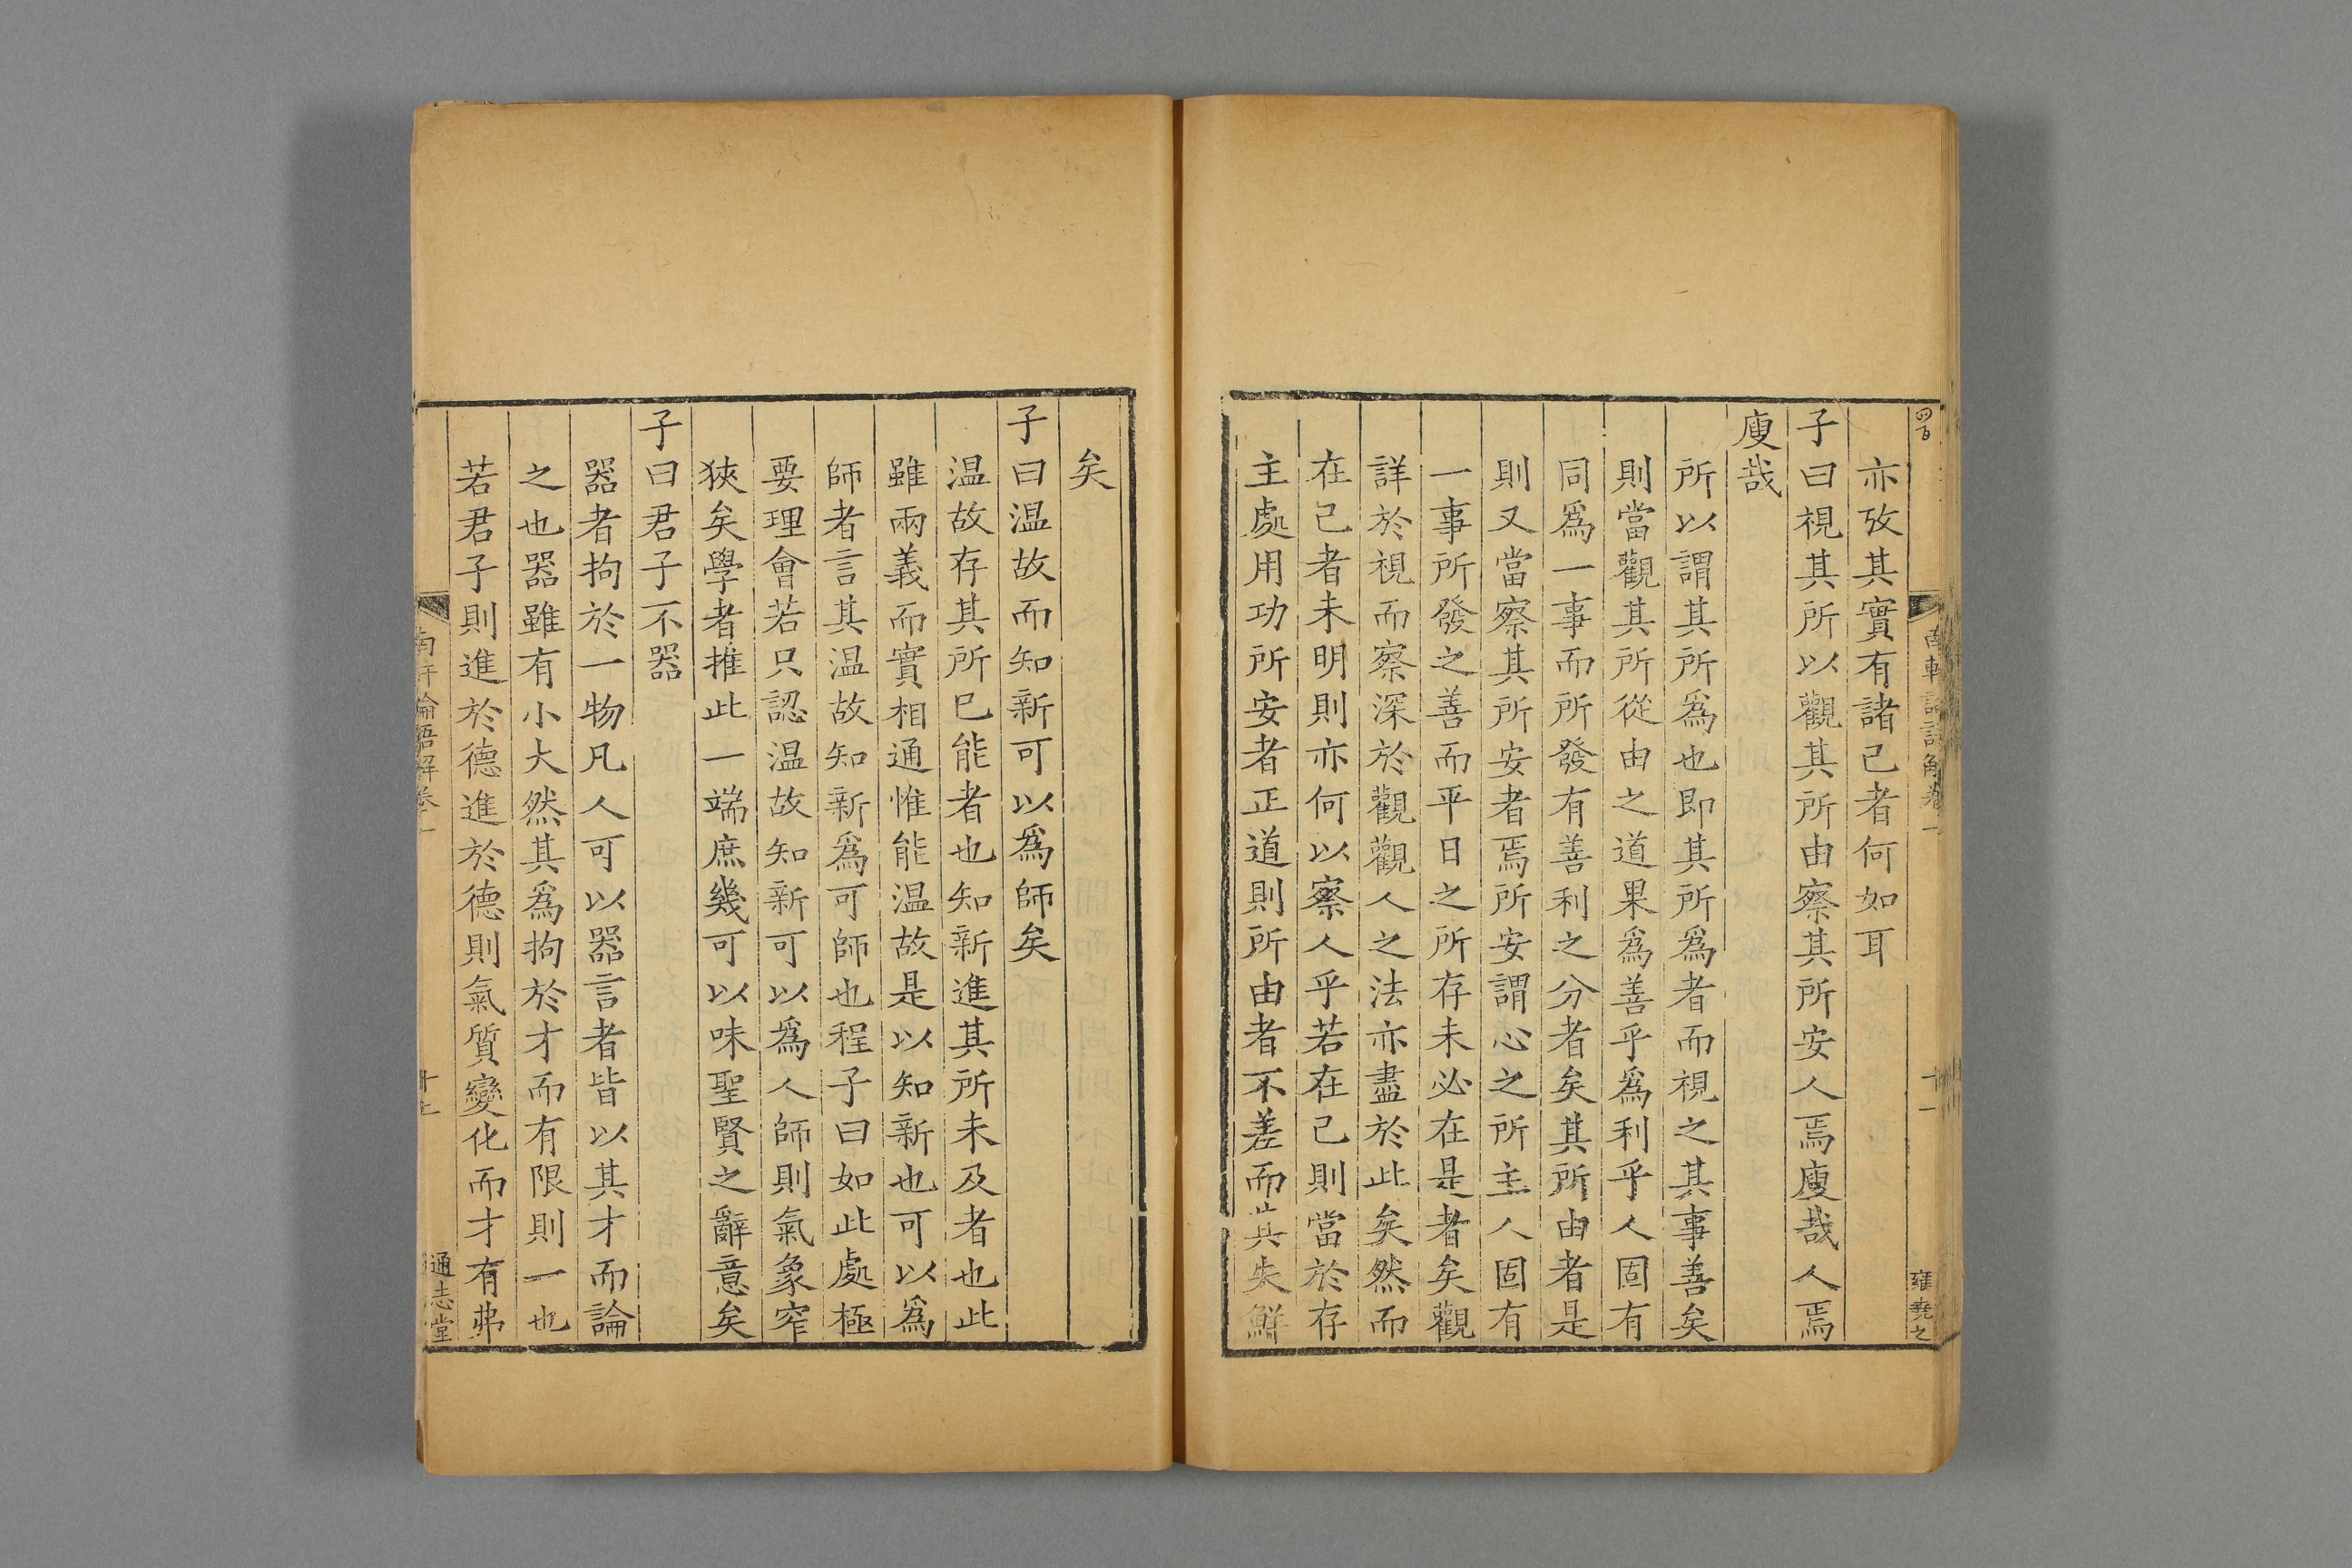 四百
南軒論語解卷一
十一
雍堯之
亦攷其實有諸己者何如耳
子曰視其所以觀其所由察其所安人焉廋哉人焉
廋哉
所以謂其所爲也即其所爲者而視之其事善矣
則當觀其所從由之道果爲善乎爲利乎人固有
同爲一事而所發有善利之分者矣其所由者是
則又當察其所安者焉所安謂心之所主人固有
一事所發之善而平日之所存未必在是者矣觀
詳於視而察深於觀觀人之法亦盡於此矣然而
在己者未明則亦何以察人乎若在己則當於存
主處用功所安者正道則所由者不差而其失鮮
矣
子曰溫故而知新可以爲師矣
溫故存其所已能者也知新進其所未及者也此
雖兩義而實相通惟能溫故是以知新也可以爲
師者言其溫故知新爲可師也程子曰如此處極
要理會若只認溫故知新可以爲人師則氣象窄
狹矣學者推此一端庶幾可以味聖賢之辭意矣
子曰君子不器
器者拘於一物凡人可以器言者皆以其才而論
之也器雖有小大然其爲拘於才而有限則一也
若君子則進於德進於德則氣質變化而才有弗
南軒論語解卷一
通志堂